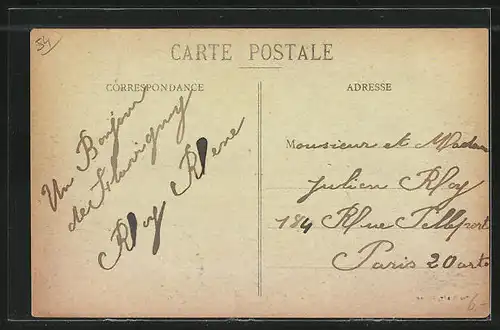 54
CARTE POSTALE
CORRESPONDANCE
ADRESSE
Un Bonjour
de Flavigny
Roy Rene
Monsieur et Madam
Julien Roy
184 Rue Pelleport
Paris 20 arto
6.-